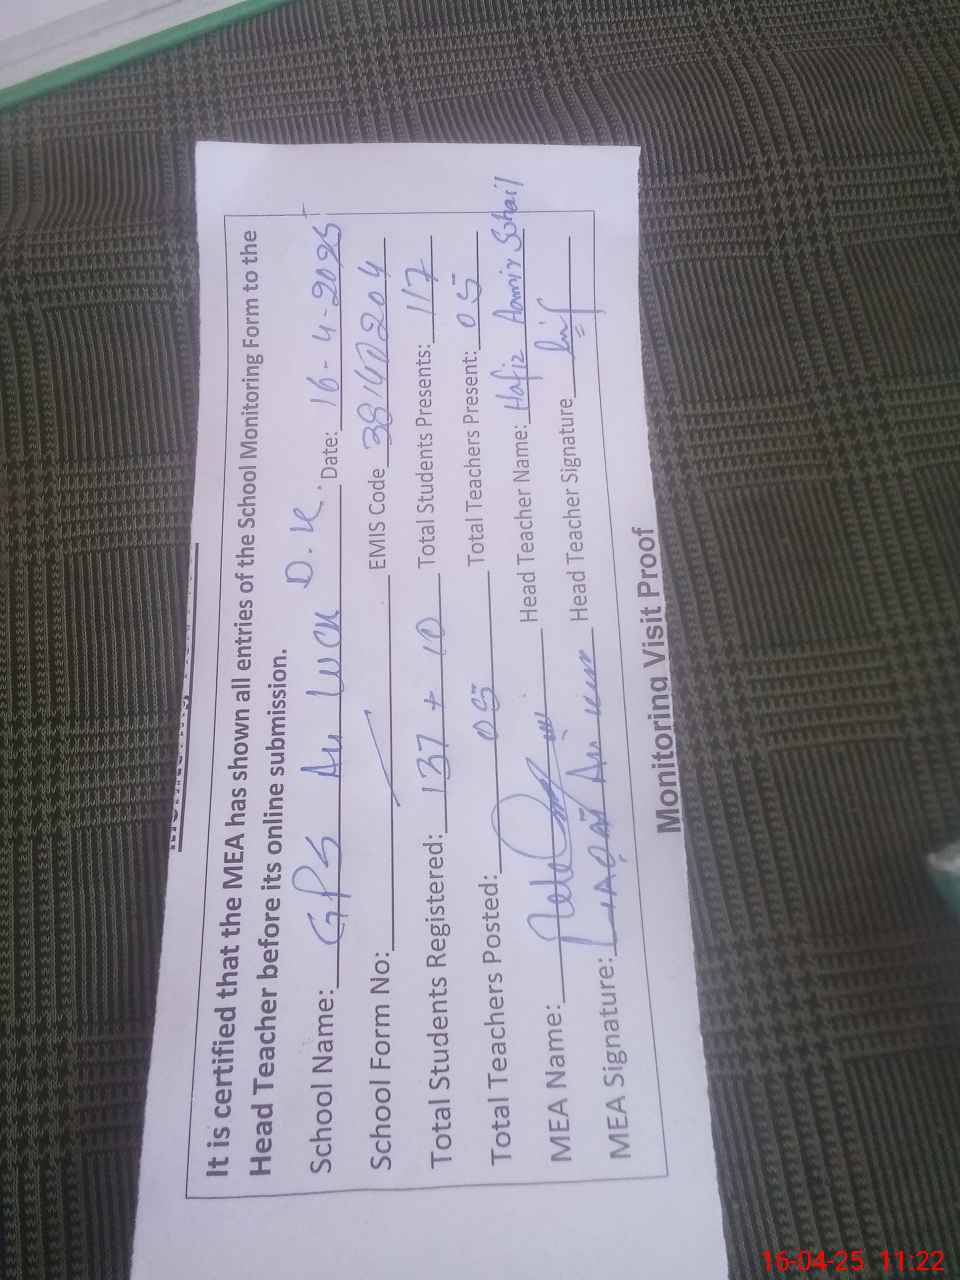 It is certified that the MEA has shown all entries of the School Monitoring Form to the
Head Teacher before its online submission.
School Name: GPS Au Wck D.K. Date: 16-4-2025
School Form No: EMIS Code 38140204
Total Students Registered: 137 + 10 Total Students Presents: 117
Total Teachers Posted: 05 Total Teachers Present: 05
MEA Name: Head Teacher Name: Hafiz Aamir Sohail
MEA Signature: Head Teacher Signature
Monitoring Visit Proof
16-04-25 11:22